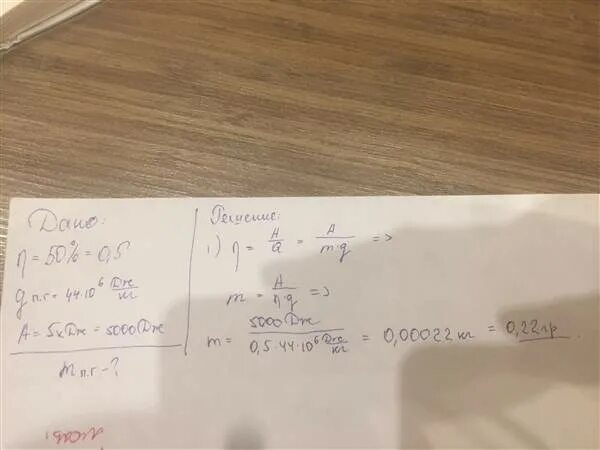 Дано:
η = 50% = 0,5
q п.г = 44·10⁶ Дж/кг
A = 5кДж = 5000Дж
m п.г - ?
Решение:
1) η = A/Q = A/m·q =>
m = A/η·q =>
m = 5000Дж / 0,5·44·10⁶ Дж/кг = 0,00022кг = 0,22гр.